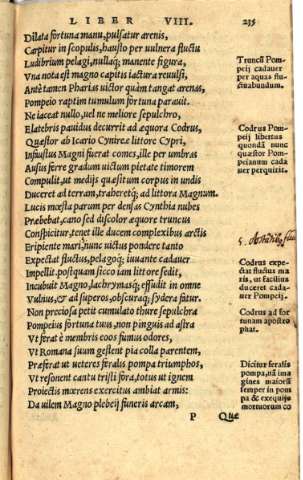 LIBER VIII. 235
Dilata fortuna manu, pulsatur arenis,
Carpitur in scopulis, hausto per uulnera fluctu
Ludibrium pelagi, nullaq; manente figura,
Vna nota est magno capitis iactura reuulsi.
Ante tamen Pharias uictor quàm tangat arenas,
Pompeio raptim tumulum fortuna parauit.
Ne iaceat nullo, uel ne meliore sepulchro,
Elatebris pauidus decurrit ad æquora Codrus,
Quæstor ab Icario Cynireæ littore Cypri,
Infaustus Magni fuerat comes, ille per umbras
Ausus ferre gradum uictum pietate timorem
Compulit, ut medijs quæsitum corpus in undis
Duceret ad terram, traheretq; ad littora Magnum.
Lucis mœsta parum per densas Cynthia nubes
Præbebat, cano sed discolor æquore truncus
Conspicitur, tenet ille ducem complexibus arctis
Eripiente mari: nunc uictus pondere tanto
Expectat fluctus, pelagoq; iuuante cadauer
Impellit. postquam sicco iam littore sedit,
Incubuit Magno, lachrymasq; effudit in omne
Vulnus, & ad superos, obscuraq; sydera fatur.
Non preciosa petit cumulato thure sepulchra
Pompeius fortuna tuus, non pinguis ad astra
Vt ferat è membris eoos fumus odores,
Vt Romana suum gestent pia colla parentem,
Præferat ut ueteres feralis pompa triumphos,
Vt resonent cantu tristi fora, totus ut ignem
Proiectis mœrens exercitus ambiat armis:
Da uilem Magno plebeij funeris arcam,
P Que
Truncū Pom-
peij cadauer
per aquas flu-
ctuabundum.
Codrus Pom-
peij libertus
quondā nunc
quæstor Pom-
peianum cada
uer perquirit.
Codrus expe-
ctat fluctus ma
ris, ut facilius
duceret cada-
uer Pompeij.
Codrus ad for
tunam apostro
phat.
Dicitur feralis
pompa, nā im-
agines maiorū
semper in pom
pa & exequijs
mortuorum co